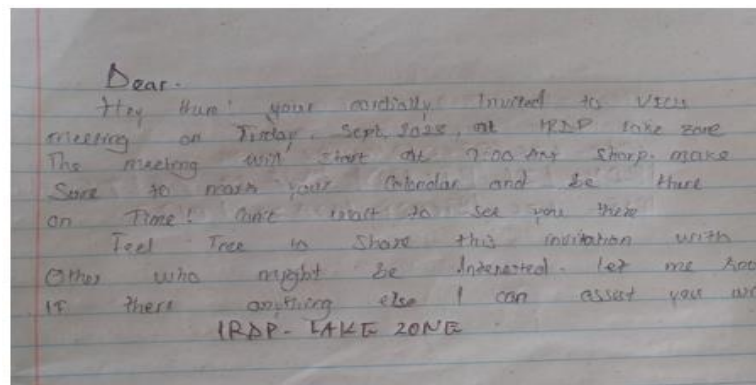 Dear.
Hey there! your cordially Invited to
meeting on Friday, Sept, 2023, at IRDP lake zone
The meeting will start at 9:00 AM sharp. make
Sure to mark your Calendar and be there
on Time! can't wait to see you there
Feel Free to Share this invitation with
Other who might be Interested. Let me
If there anything else I can assist you
IRDP- LAKE ZONE